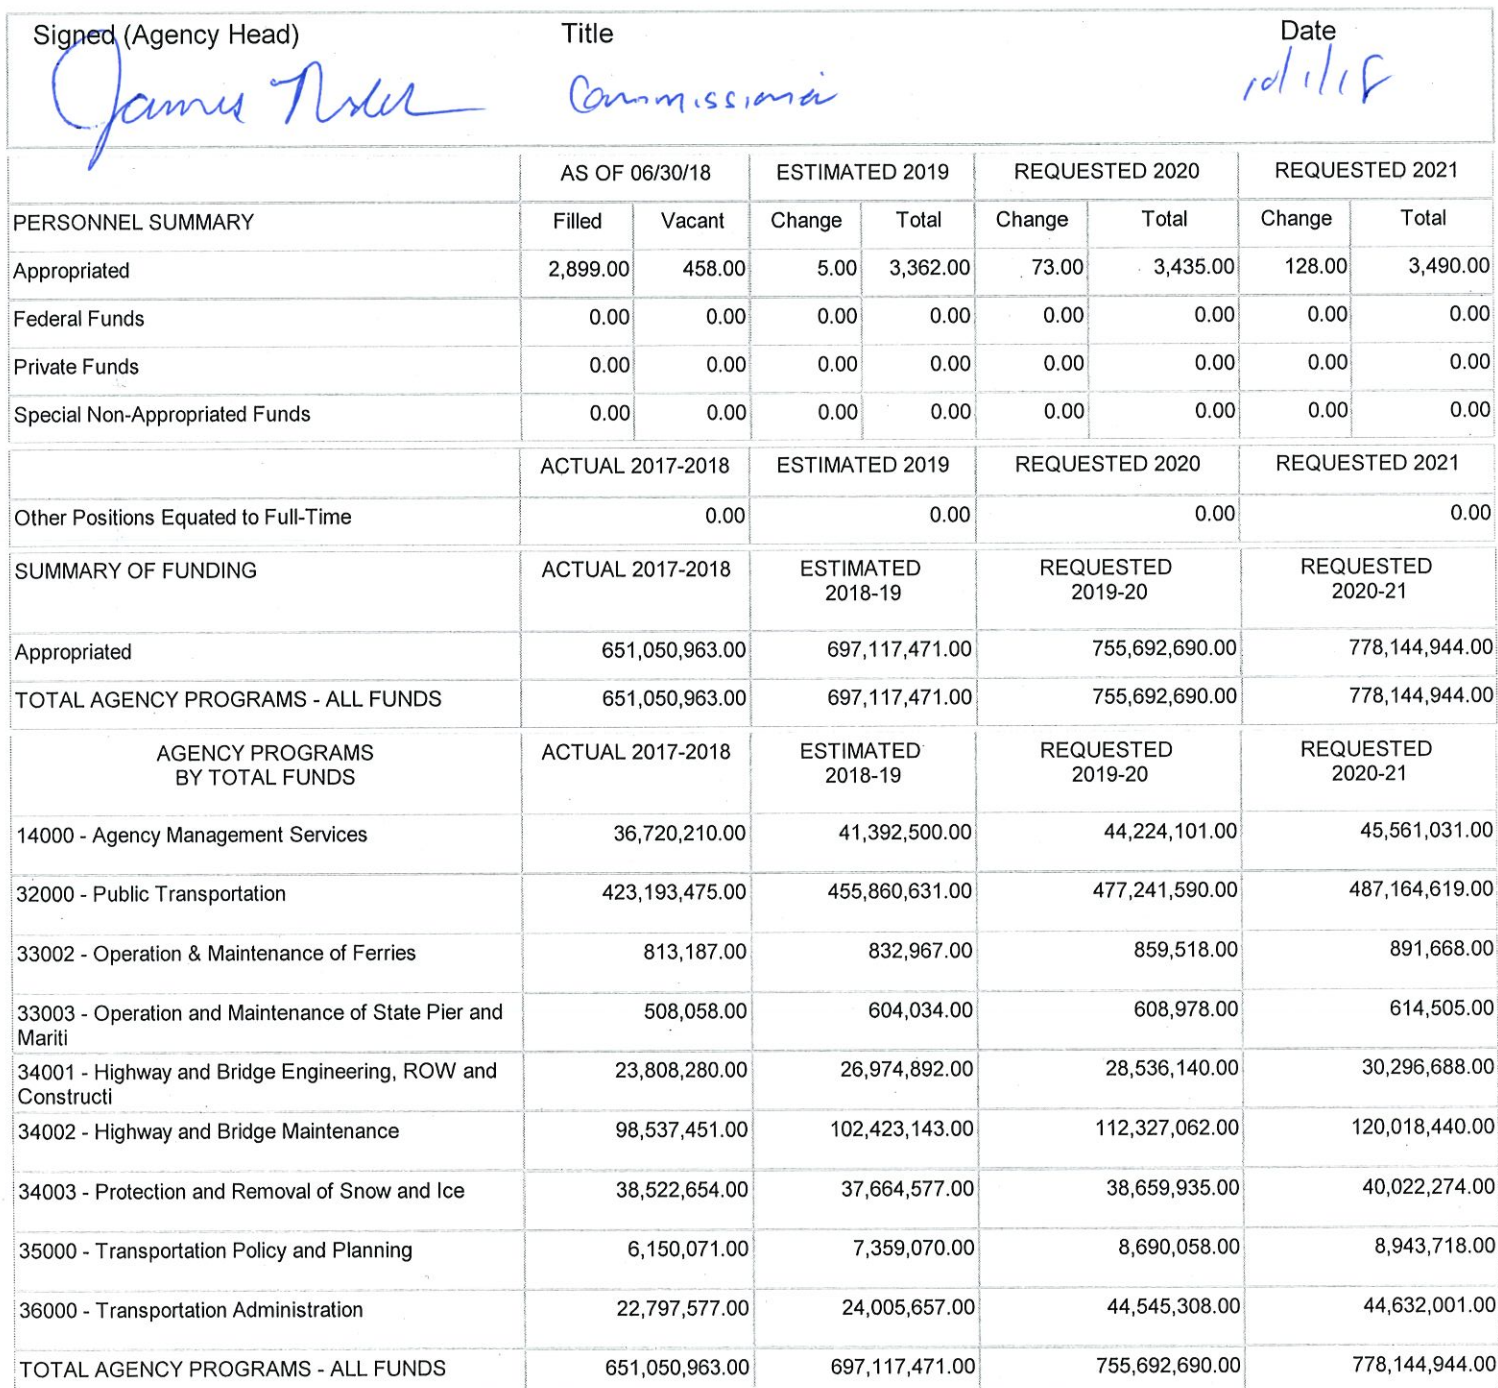 Signed (Agency Head) Title Date
James Commissioner 10/1/18
AS OF 06/30/18 ESTIMATED 2019 REQUESTED 2020 REQUESTED 2021
PERSONNEL SUMMARY Filled Vacant Change Total Change Total Change Total
Appropriated 2,899.00 458.00 5.00 3,362.00 73.00 3,435.00 128.00 3,490.00
Federal Funds 0.00 0.00 0.00 0.00 0.00 0.00 0.00 0.00
Private Funds 0.00 0.00 0.00 0.00 0.00 0.00 0.00 0.00
Special Non-Appropriated Funds 0.00 0.00 0.00 0.00 0.00 0.00 0.00 0.00
ACTUAL 2017-2018 ESTIMATED 2019 REQUESTED 2020 REQUESTED 2021
Other Positions Equated to Full-Time 0.00 0.00 0.00 0.00
SUMMARY OF FUNDING ACTUAL 2017-2018 ESTIMATED REQUESTED REQUESTED
2018-19 2019-20 2020-21
Appropriated 651,050,963.00 697,117,471.00 755,692,690.00 778,144,944.00
TOTAL AGENCY PROGRAMS - ALL FUNDS 651,050,963.00 697,117,471.00 755,692,690.00 778,144,944.00
AGENCY PROGRAMS ACTUAL 2017-2018 ESTIMATED REQUESTED REQUESTED
BY TOTAL FUNDS 2018-19 2019-20 2020-21
14000 - Agency Management Services 36,720,210.00 41,392,500.00 44,224,101.00 45,561,031.00
32000 - Public Transportation 423,193,475.00 455,860,631.00 477,241,590.00 487,164,619.00
33002 - Operation & Maintenance of Ferries 813,187.00 832,967.00 859,518.00 891,668.00
33003 - Operation and Maintenance of State Pier and 508,058.00 604,034.00 608,978.00 614,505.00
Mariti
34001 - Highway and Bridge Engineering, ROW and 23,808,280.00 26,974,892.00 28,536,140.00 30,296,688.00
Constructi
34002 - Highway and Bridge Maintenance 98,537,451.00 102,423,143.00 112,327,062.00 120,018,440.00
34003 - Protection and Removal of Snow and Ice 38,522,654.00 37,664,577.00 38,659,935.00 40,022,274.00
35000 - Transportation Policy and Planning 6,150,071.00 7,359,070.00 8,690,058.00 8,943,718.00
36000 - Transportation Administration 22,797,577.00 24,005,657.00 44,545,308.00 44,632,001.00
TOTAL AGENCY PROGRAMS - ALL FUNDS 651,050,963.00 697,117,471.00 755,692,690.00 778,144,944.00